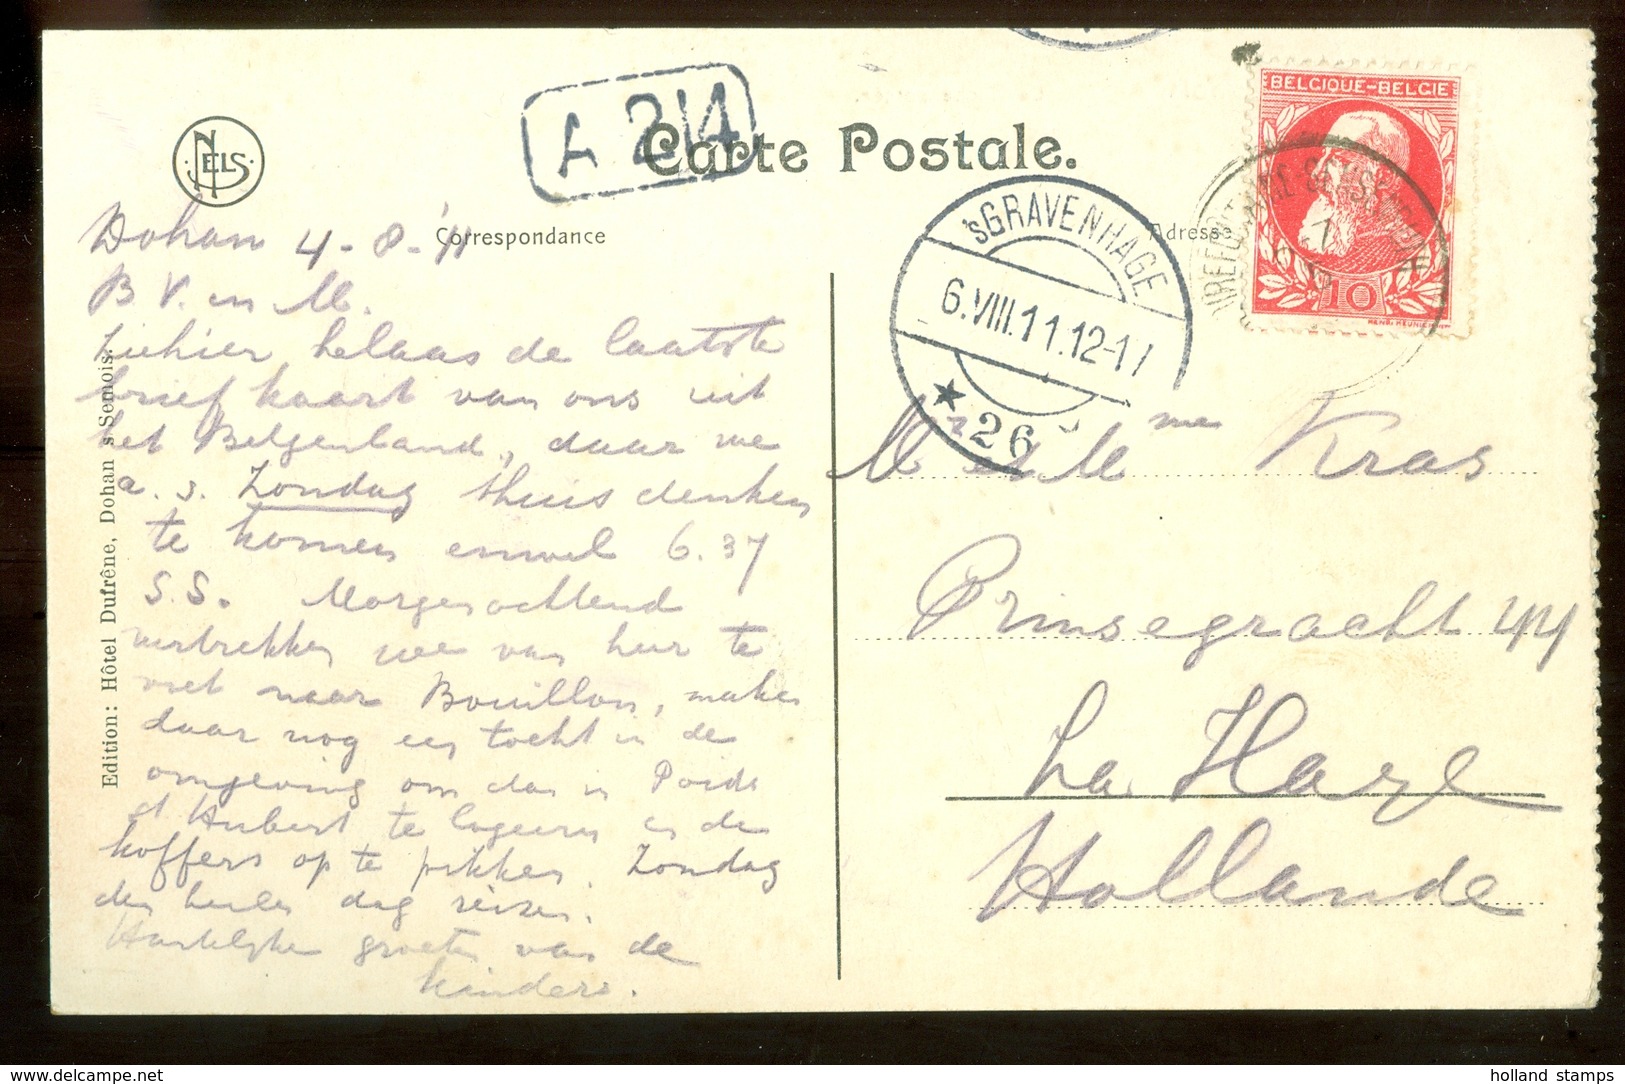 NELS
L 214
Carte Postale.
Correspondance
Adresse
BELGIQUE-BELGIË
10
'sGRAVENHAGE
6.VIII.11.12-1
26
Dohan 4-8-'11
B V. en M.
Ziehier helaas de laatste
briefkaart van ons uit
het Belgenland, daar we
a. s. Zondag thuis denken
te komen enwel 6.37
S.S. Morgenochtend
vertrekken we van hier te
voet naar Bouillon, maken
daar nog een tocht in de
omgeving om dan in
St Hubert te logeeren en de
koffers op te pikken. Zondag
den heelen dag reizen.
Hartelijke groeten van de
kinders.
Edition: Hôtel Dufrêne, Dohan s/Semois.
Mr en Mme Kras
Prinsegracht 44
La Haye
Hollande
holland stamps